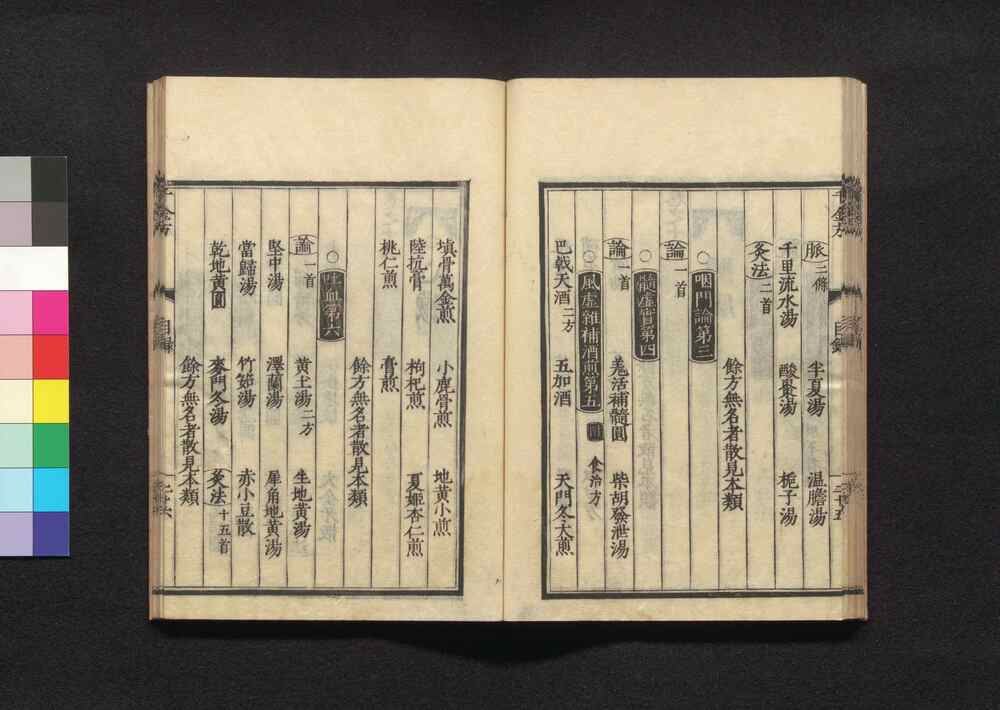 脈三條 半夏湯 温膽湯
千里流水湯 酸棗湯 梔子湯
灸法二首
餘方無名者散見本類
○咽門論第三
論一首
○髓虛實第四
論一首 羗活補髓圓 柴胡發泄湯
○風虛雜補酒煎第五 附 食治方
巴戟天酒二方 五加酒 天門冬大煎
填骨萬金煎 小鹿骨煎 地黄小煎
陸抗膏 枸杞煎 夏姬杏仁煎
桃仁煎 膏煎
餘方無名者散見本類
○吐血第六
論一首 黄土湯二方 生地黄湯
堅中湯 澤蘭湯 犀角地黄湯
當歸湯 竹茹湯 赤小豆散
乾地黄圓 麥門冬湯 灸法十五首
餘方無名者散見本類
千金方 目録